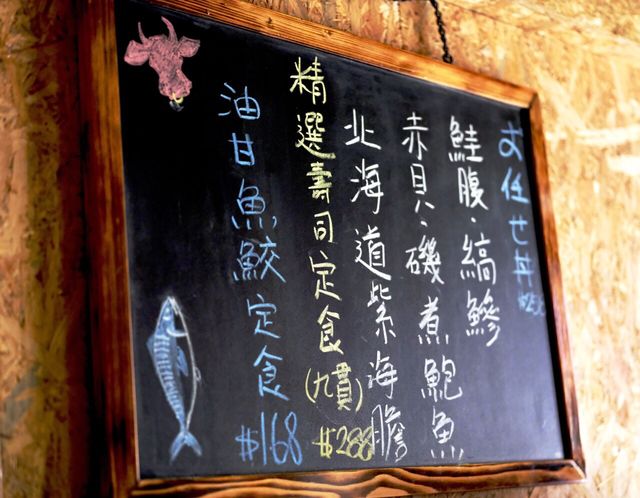 お任せ丼
鮭腹·縞鰺
赤貝·磯煮鮑魚
北海道紫海膽
精選壽司定食(九貫)$288
油甘魚鮫定食$168